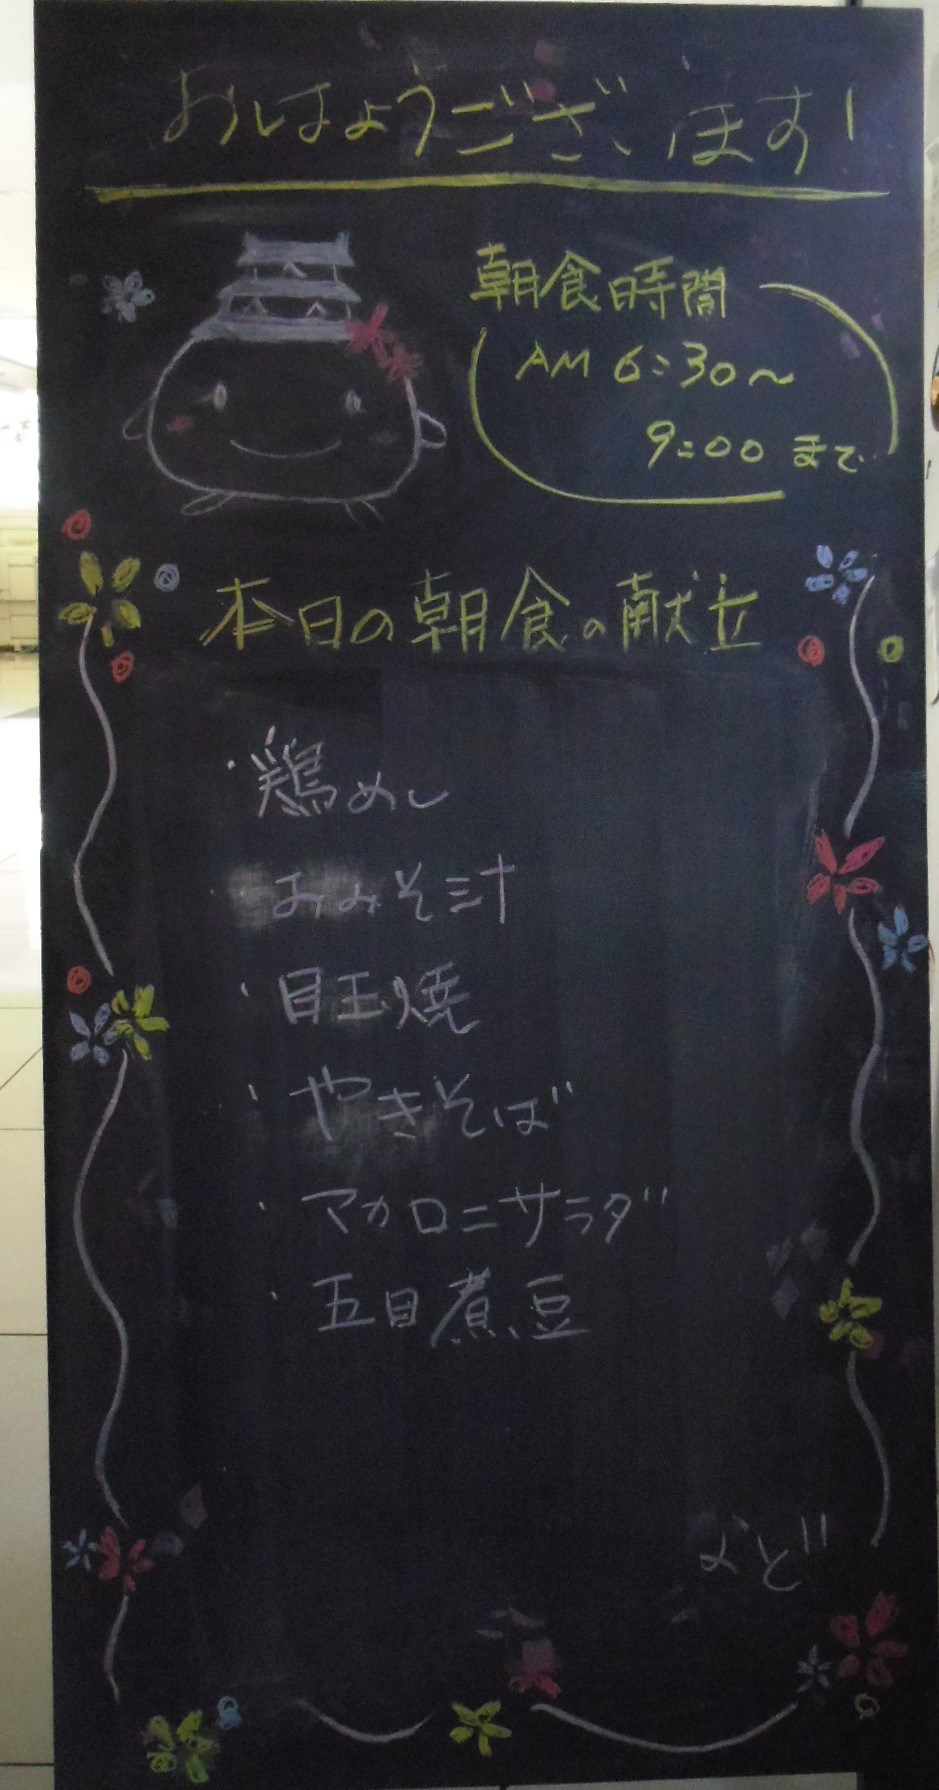 おはようございます!
朝食時間
AM 6:30~
9:00 まで
本日の朝食の献立
・鶏めし
・おみそ汁
・目玉焼
・やきそば
・マカロニサラダ
・五目煮豆
など